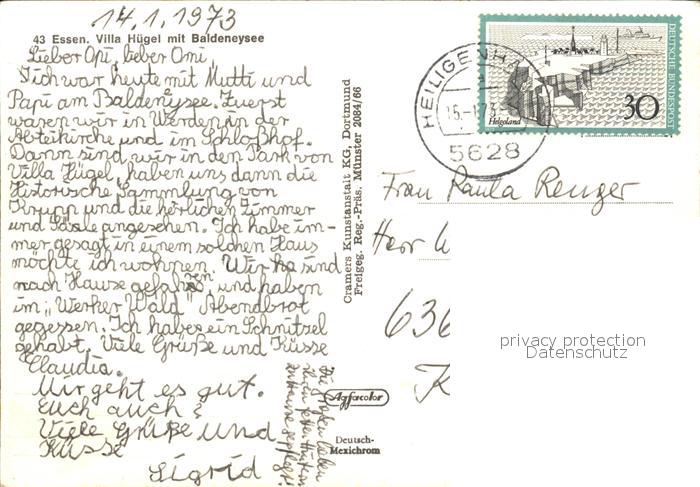 14.1.1973
43 Essen. Villa Hügel mit Baldeneysee
Lieber Opi, lieber Omi,
Ich war heute mit Mutti und
Papi am Baldeneysee. Zuerst
waren wir in Werden in der
Abteikirche und im Schloßhof.
Dann sind wir in den Park von
Villa Hügel, haben uns dann die
Historische Sammlung von
Krupp und die herlichen Zimmer
und Säale angesehen. Ich habe im-
mer gesagt in einem solchen Haus
möchte ich wohnen. Wir sind
nach Hause gefahren, und haben
im "Werker Wald" Abendbrot
gegessen. Ich habe ein Schnitzel
gehabt. Viele Grüße und Küsse
Claudia.
Mir geht es gut.
Euch auch?
Viele Grüße und
Küsse
Sigrid
Cramers Kunstanstalt KG, Dortmund
Freigeg. Reg.-Präs. Münster 2084/66
Agfacolor
Deutsch-
Mexichrom
HEILIGENHA
15.-1.73
5628
DEUTSCHE BUNDESPOST
Helgoland
30
Frau Paula Renger
Herr W
636
K
privacy protection
Datenschutz